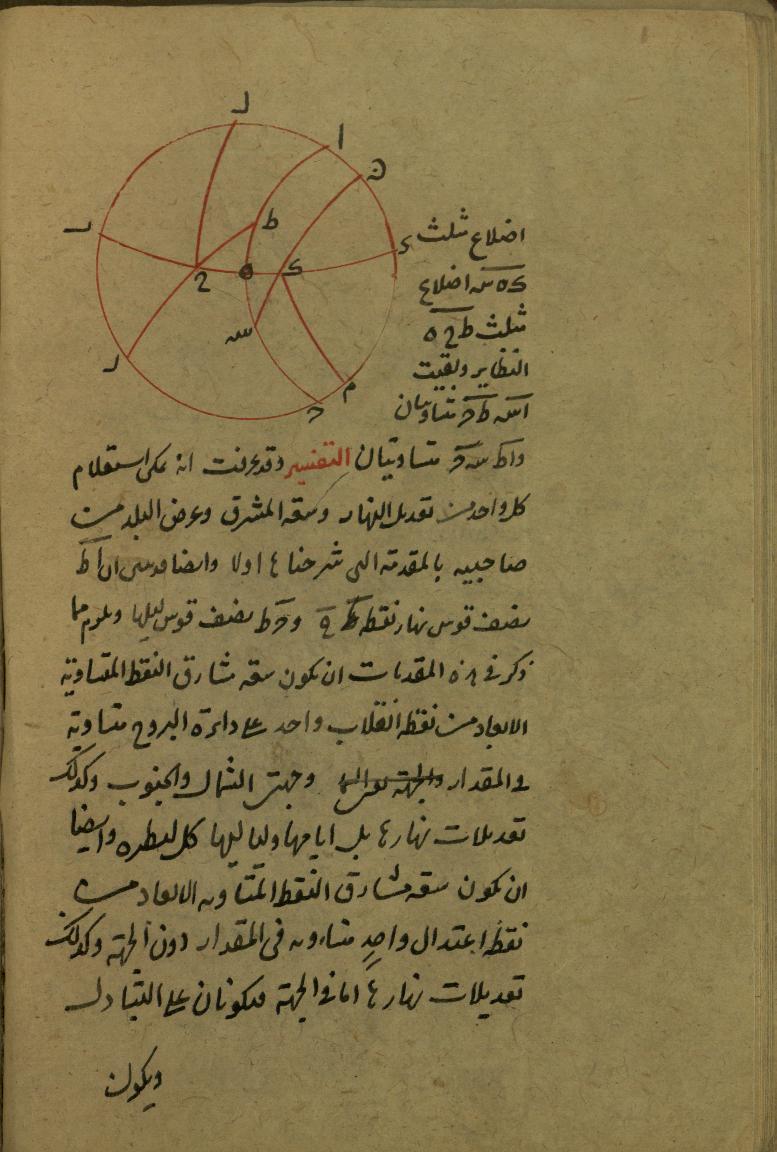 ل
ا
ن
ط
ب
ع
ح ه ى
س
ر
م
ج
اضلاع مثلث
ى ه س اضلاع
مثلث ط ح ه
النظاير وبقيت
اس ط ج متساويتان
واط س ج متساويتان التفسير وقد عرفت انه يمكن استعلام
كل واحد من تعديل النهار وسعة المشرق وعرض البلد من
صاحبيه بالمقدمة التى شرحناها اولا وايضا ان اط
نصف قوس نهار نقطة ح و ج ط نصف قوس ليلها ويلزم مما
ذكر فى هذه المقدمات ان يكون سعة مشارق النقط المتساوية
الابعاد من نقطة انقلاب واحد على دائرة البروج متساوية
فى المقدار وجهتى الشمال والجنوب وكذلك
تعديلات نهارها بل ايامها ولياليها كل لنظيره وايضا
ان يكون سعة مشارق النقط المتساوية الابعاد من
نقطة اعتدال واحدٍ متساوية فى المقدار دون الجهة وكذلك
تعديلات نهارها اما فى الجهة فيكونان على التبادل
ويكون